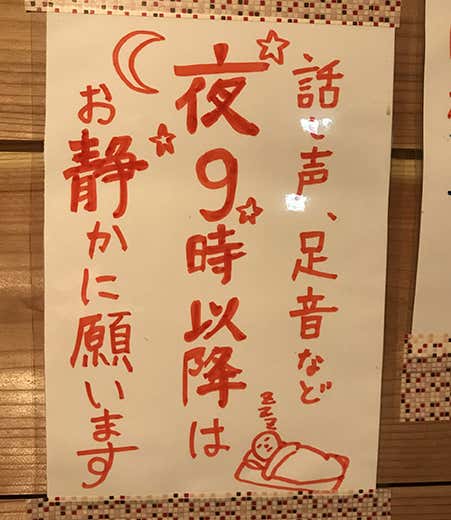 話し声、足音など
夜9時以降は
お静かに願います
zzz